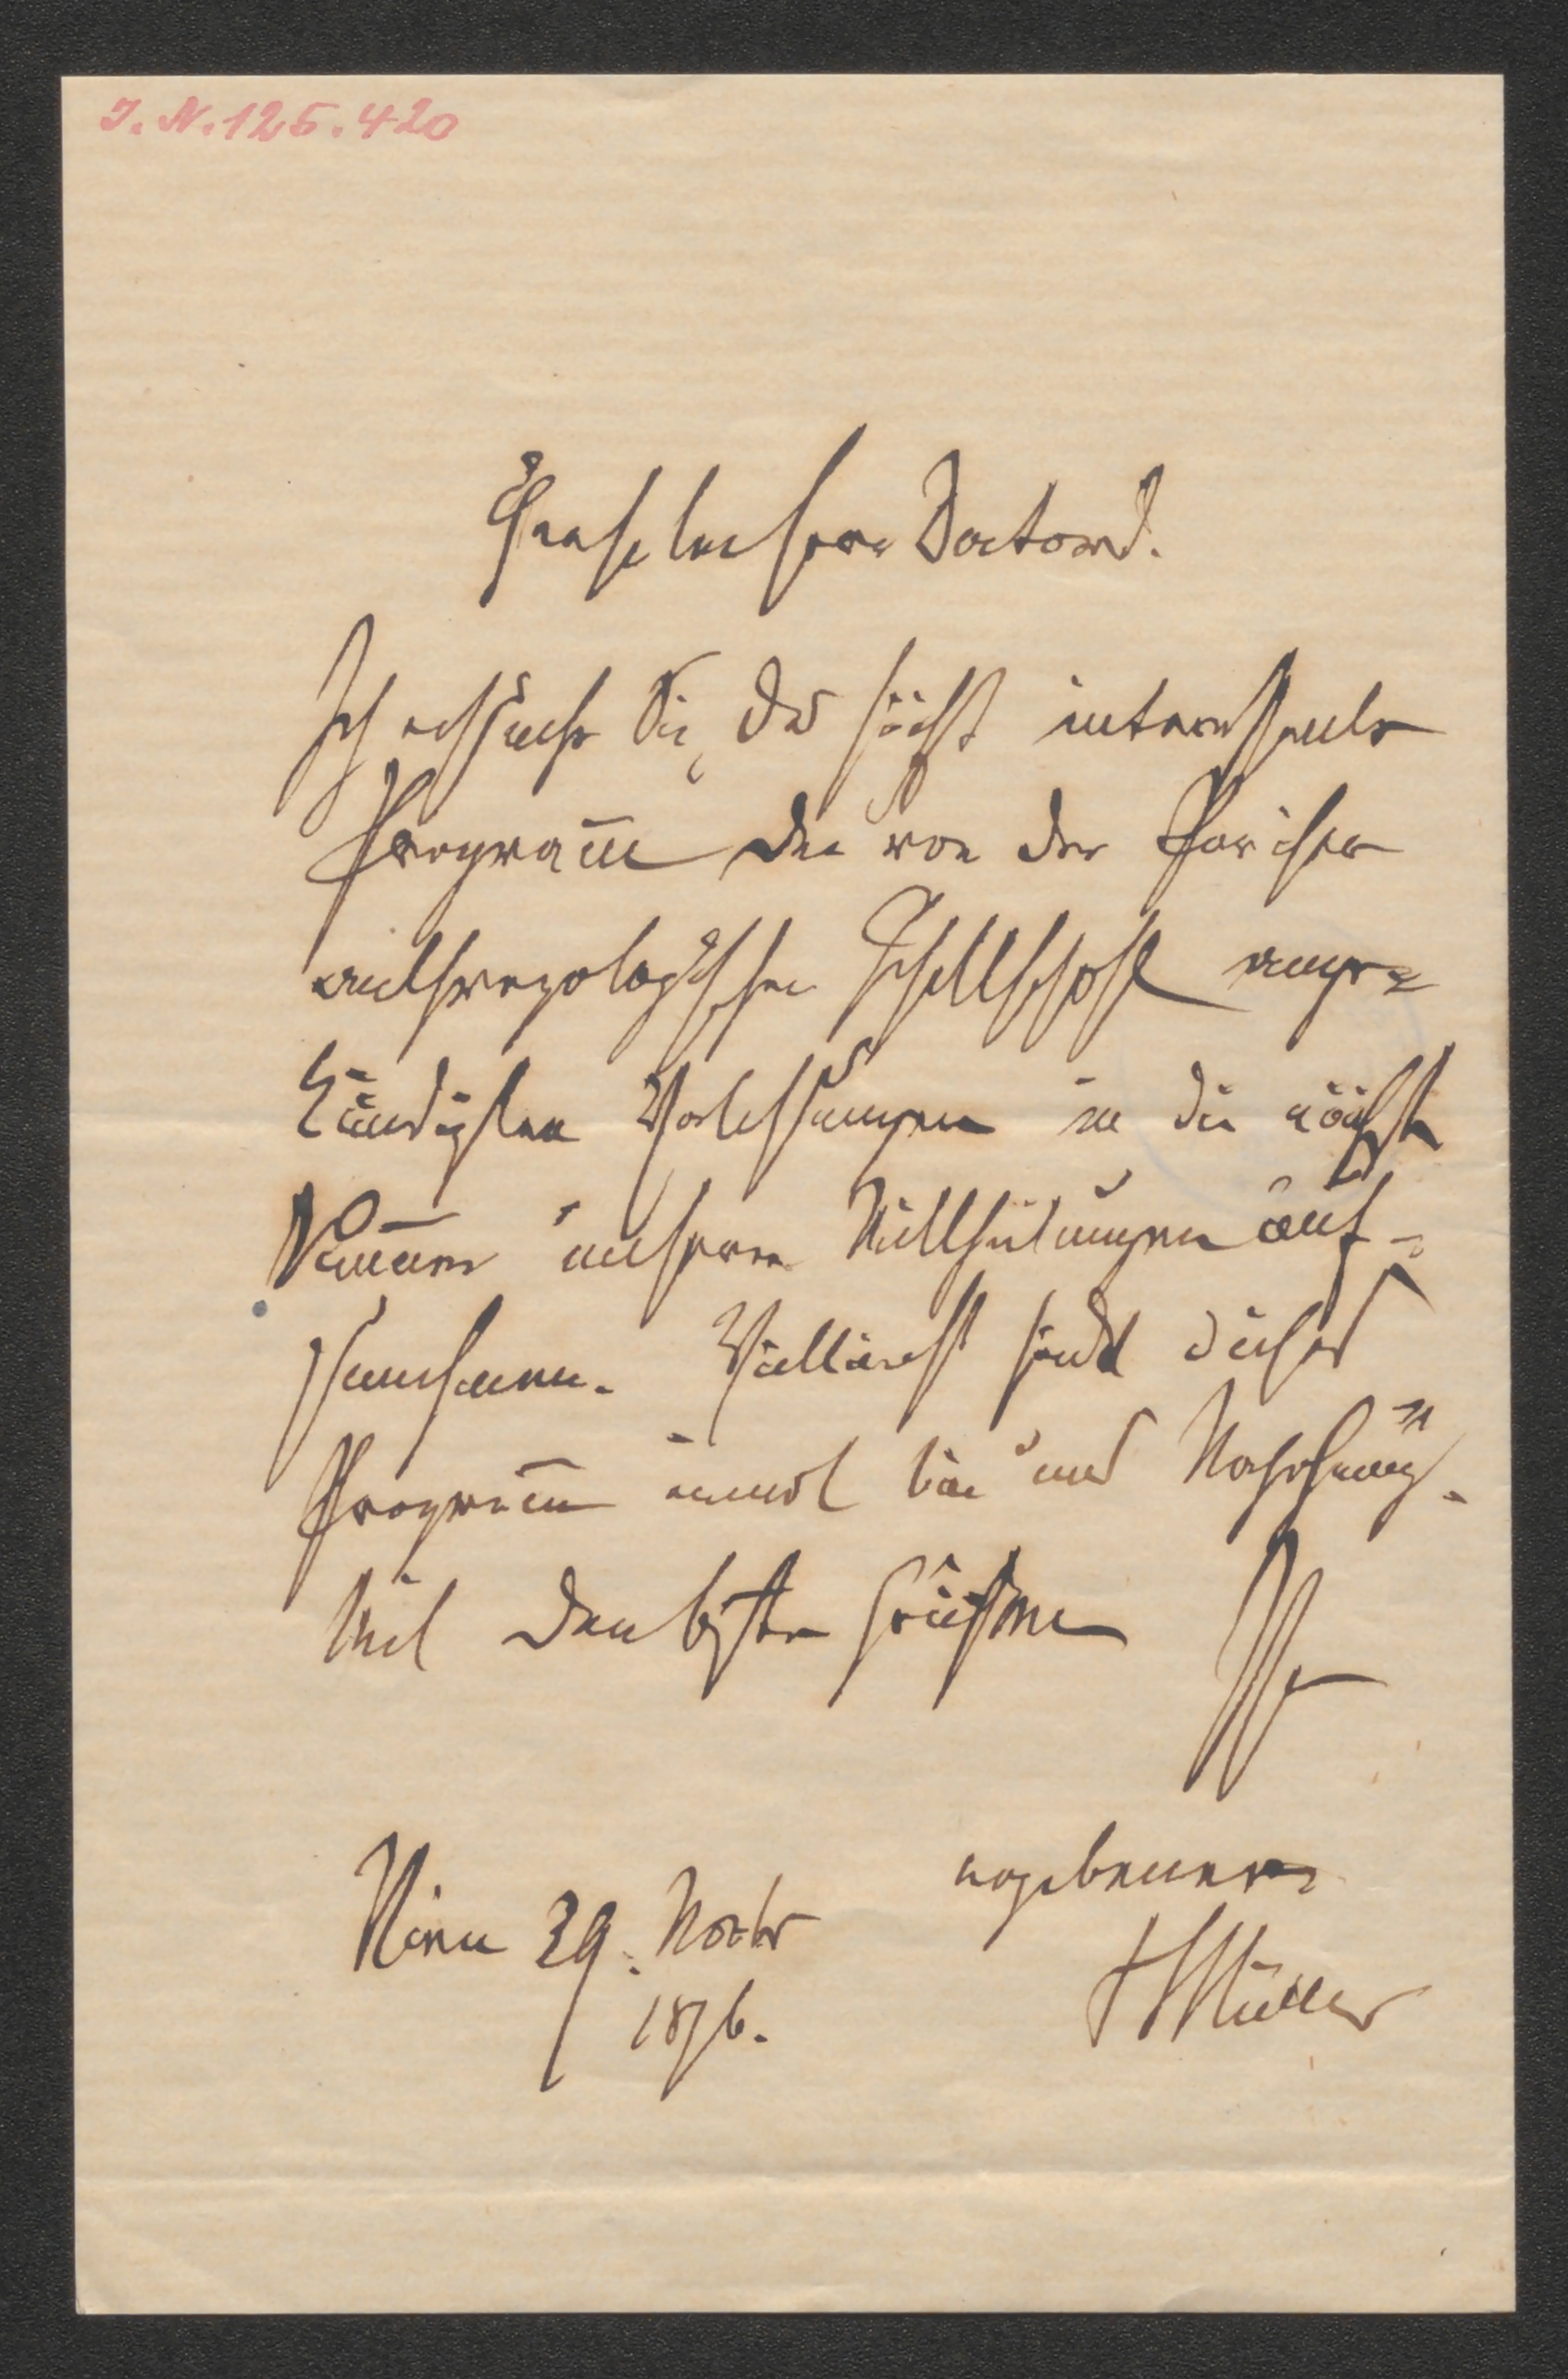 I. N. 125.420
Geehrter Herr Doctor!
Ich ersuche Sie, das höchst interessante
Program̅ der von der Pariser
anthropologischen Gesellschaft ange-
kündigten Vorlesungen in die nächste
Num̅er unserer Mittheilungen auf-
zunehmen. Vielleicht findet dieses
Program̅ einmal bei uns Nachahmung.
Mit den besten Grüßen
Ihr
ergebener
Wien 29. Novbr
1876.
FMüller